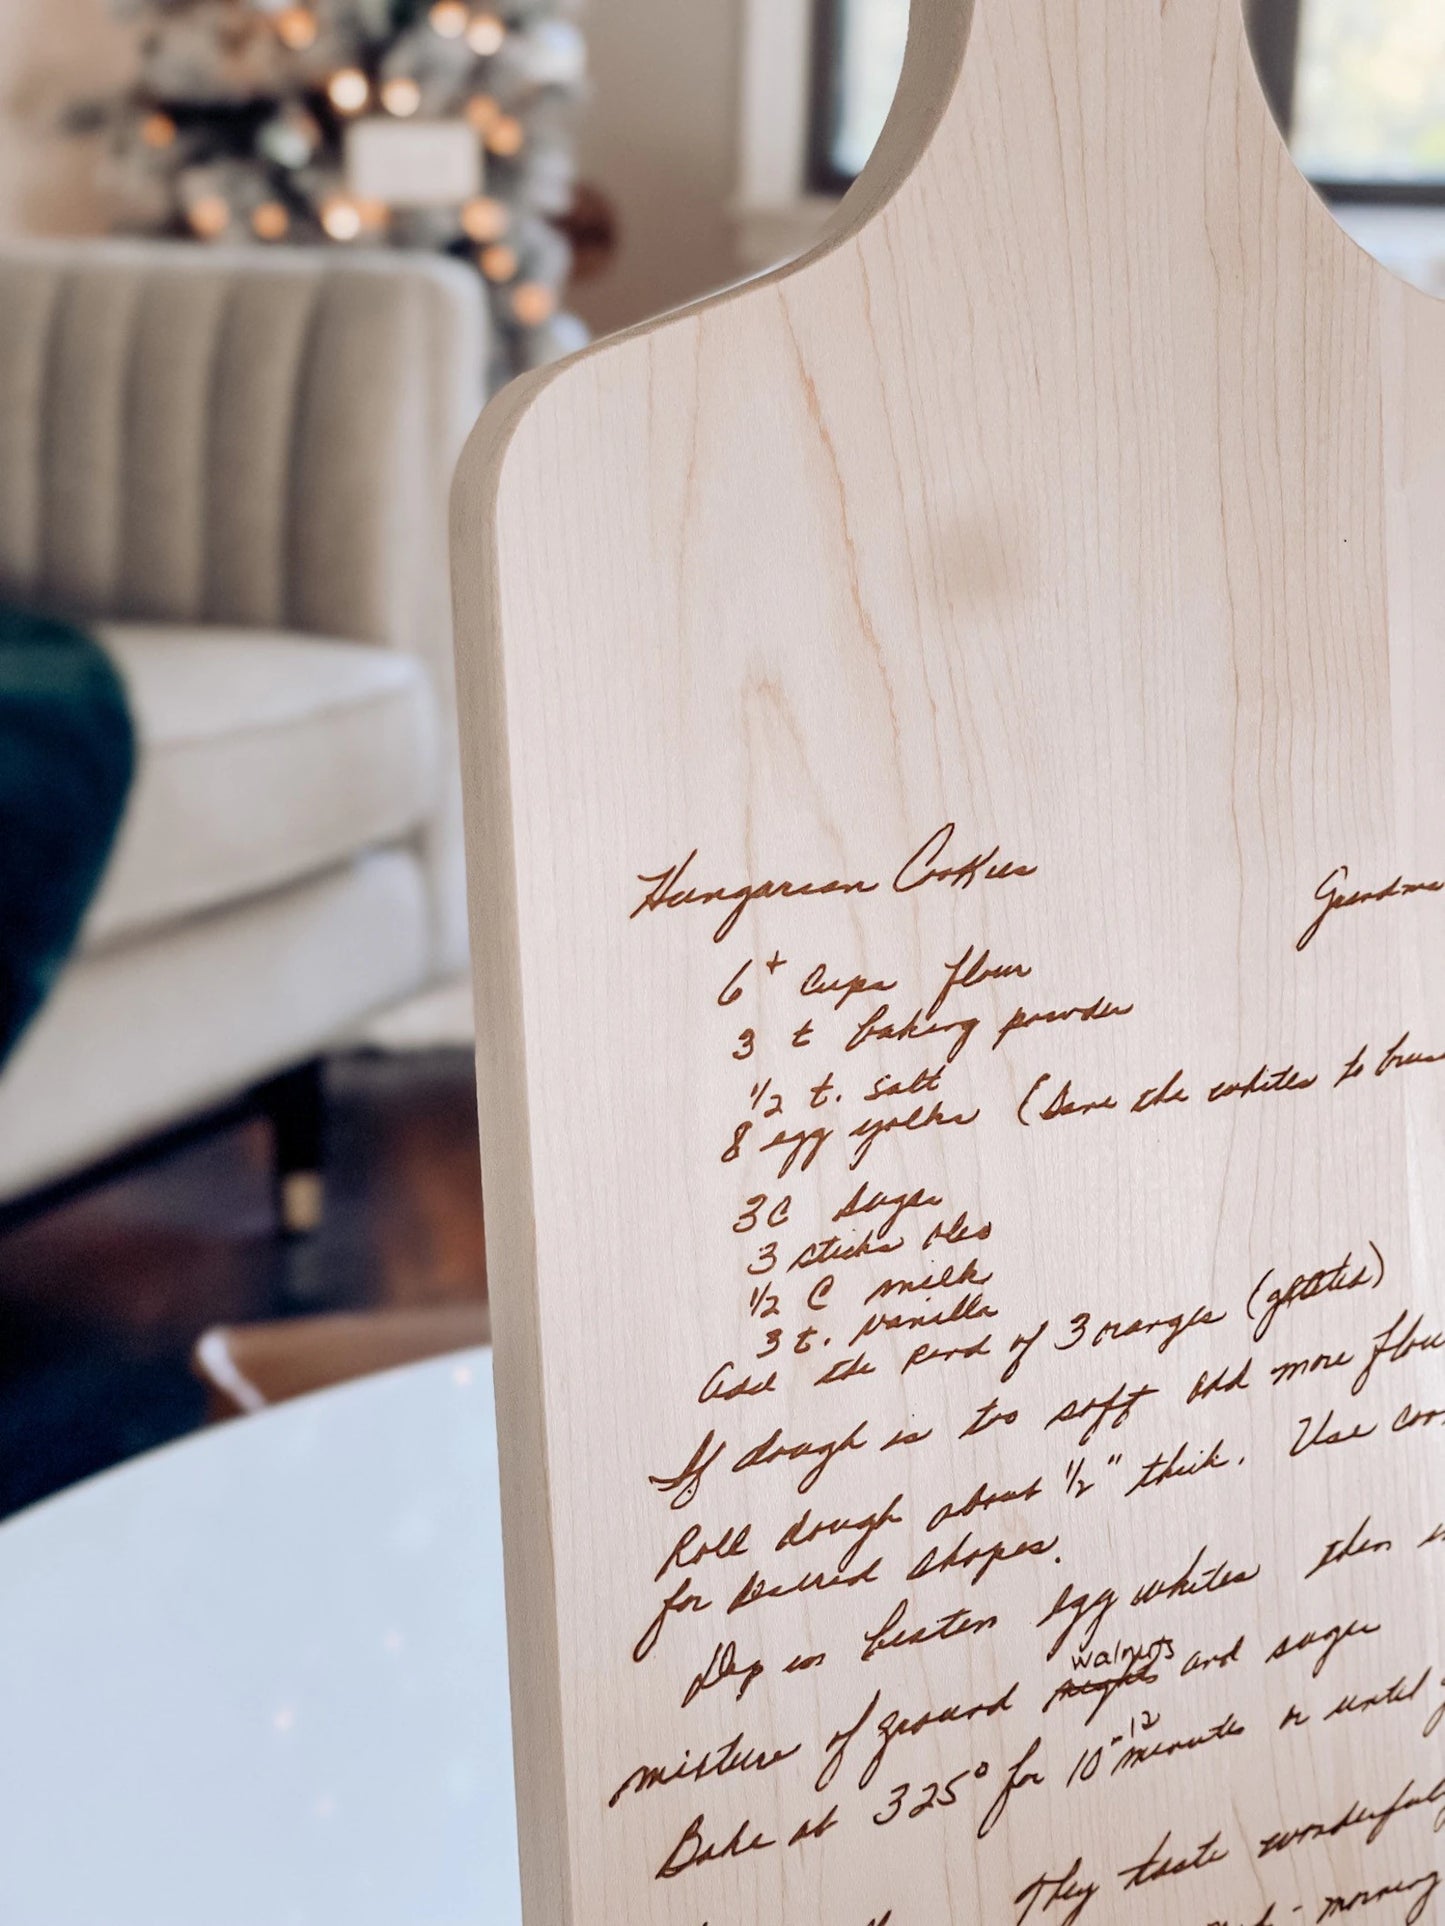 Hungarian Cookies
Grandma
6+ cups flour
3 t baking powder
1/2 t. salt
8 egg yolks (Save the whites to
3 C sugar
3 sticks oleo
1/2 C milk
3 t. vanilla
Add the rind of 3 oranges (grated)
If dough is too soft add more flou
Roll dough about 1/2" thick. Use
for desired shapes.
Dip in beaten egg whites then
walnuts
mixture of ground and sugar
Bake at 325° for 10-12 minutes or until
They taste wonderful
morning